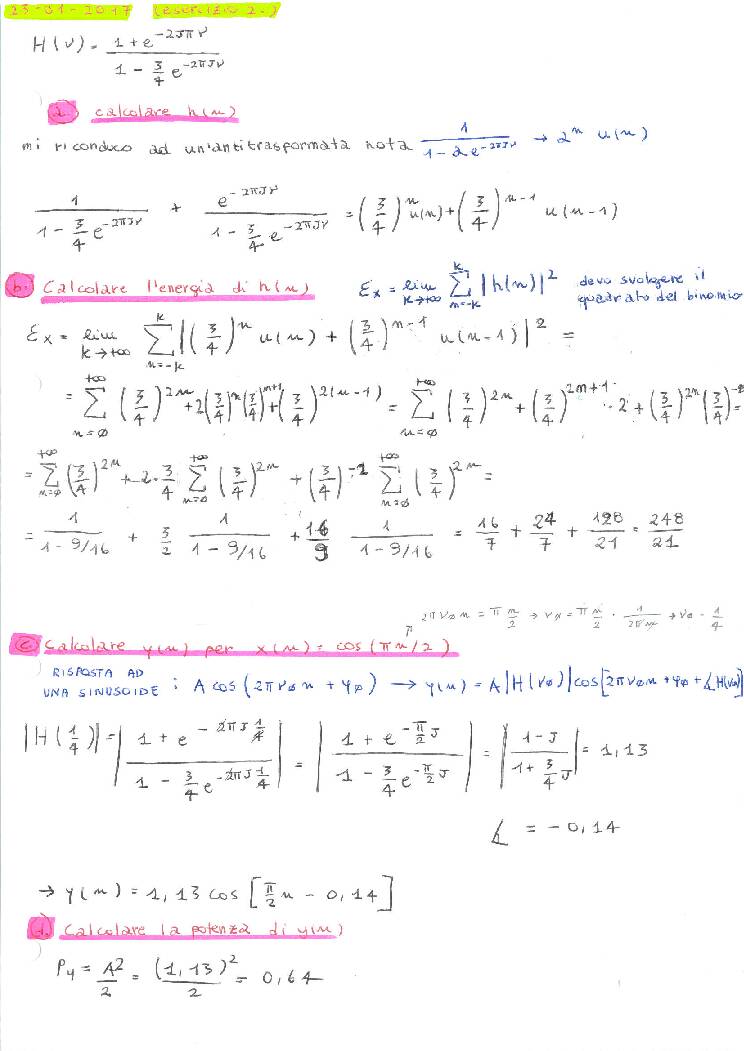 23-01-2017 (esercizio 2.)
H(ν) = (1+e^{-2Jπν}) / (1 - 3/4 e^{-2πJν})
a. calcolare h(n)
mi riconduco ad un'antitrasformata nota 1/(1-2e^{-2πJν}) → 2^n u(n)
1/(1 - 3/4 e^{-2πJν}) + e^{-2πJν}/(1 - 3/4 e^{-2πJν}) = (3/4)^n u(n) + (3/4)^{n-1} u(n-1)
b. Calcolare l'energia di h(n) Ex = lim_{k→+∞} Σ_{n=-k}^{k} |h(n)|² devo svolgere il
quadrato del binomio
Ex = lim_{k→+∞} Σ_{n=-k}^{k} |(3/4)^n u(n) + (3/4)^{n-1} u(n-1)|² =
= Σ_{n=∅}^{+∞} (3/4)^{2n} + 2(3/4)^n (3/4)^{n+1} + (3/4)^{2(n-1)} = Σ_{n=∅}^{+∞} (3/4)^{2n} + (3/4)^{2n+1} · 2 + (3/4)^{2n} (3/4)^{-2} =
= Σ_{n=∅}^{+∞} (3/4)^{2n} + 2·3/4 Σ_{n=∅}^{+∞} (3/4)^{2n} + (3/4)^{-2} Σ_{n=∅}^{+∞} (3/4)^{2n} =
= 1/(1-9/16) + 3/2 1/(1-9/16) + 16/9 1/(1-9/16) = 16/7 + 24/7 + 128/21 = 248/21
2πν∅n = π n/2 → ν∅ = π n/2 · 1/2πn → ν∅ = 1/4
c. Calcolare y(n) per x(n) = cos(πn/2)
RISPOSTA AD
UNA SINUSOIDE : A cos(2πν∅n + φ∅) → y(n) = A|H(ν∅)|cos[2πν∅n + φ∅ + ∡H(ν∅)]
|H(1/4)| = |(1 + e^{-2πJ 1/4}) / (1 - 3/4 e^{-2πJ 1/4})| = |(1 + e^{-π/2 J}) / (1 - 3/4 e^{-π/2 J})| = |(1-J) / (1+3/4 J)| = 1,13
∡ = -0,14
→ y(n) = 1,13 cos[π/2 n - 0,14]
d. Calcolare la potenza di y(n)
Py = A²/2 = (1,13)²/2 = 0,64